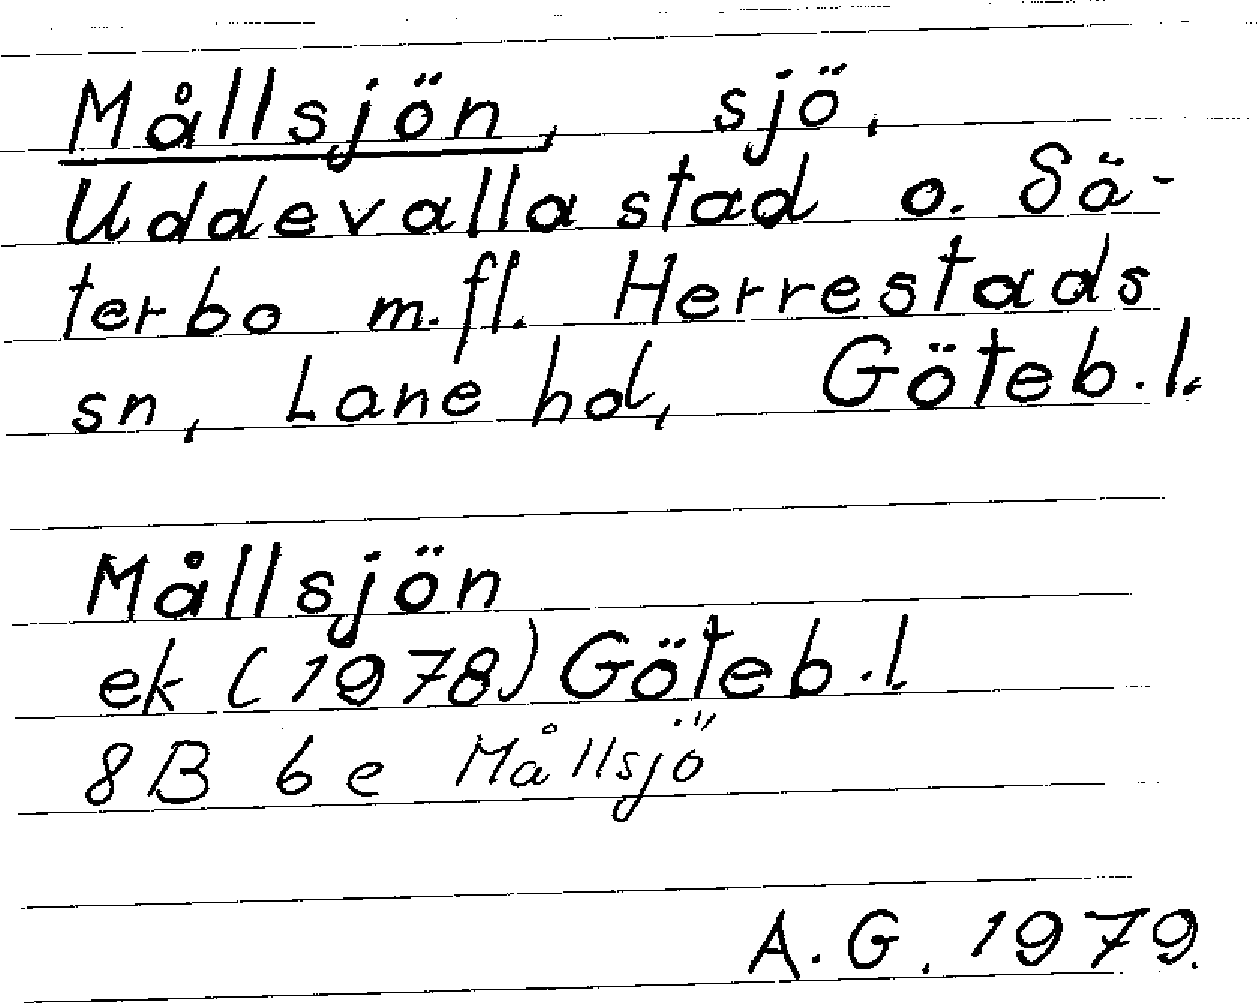 Mållsjön, sjö,
Uddevalla stad o. Sä-
terbo m.fl. Herrestads
sn, Lane hd, Göteb.l.
Mållsjön
ek (1978) Göteb.l.
8B 6e Mållsjö
A.G. 1979.